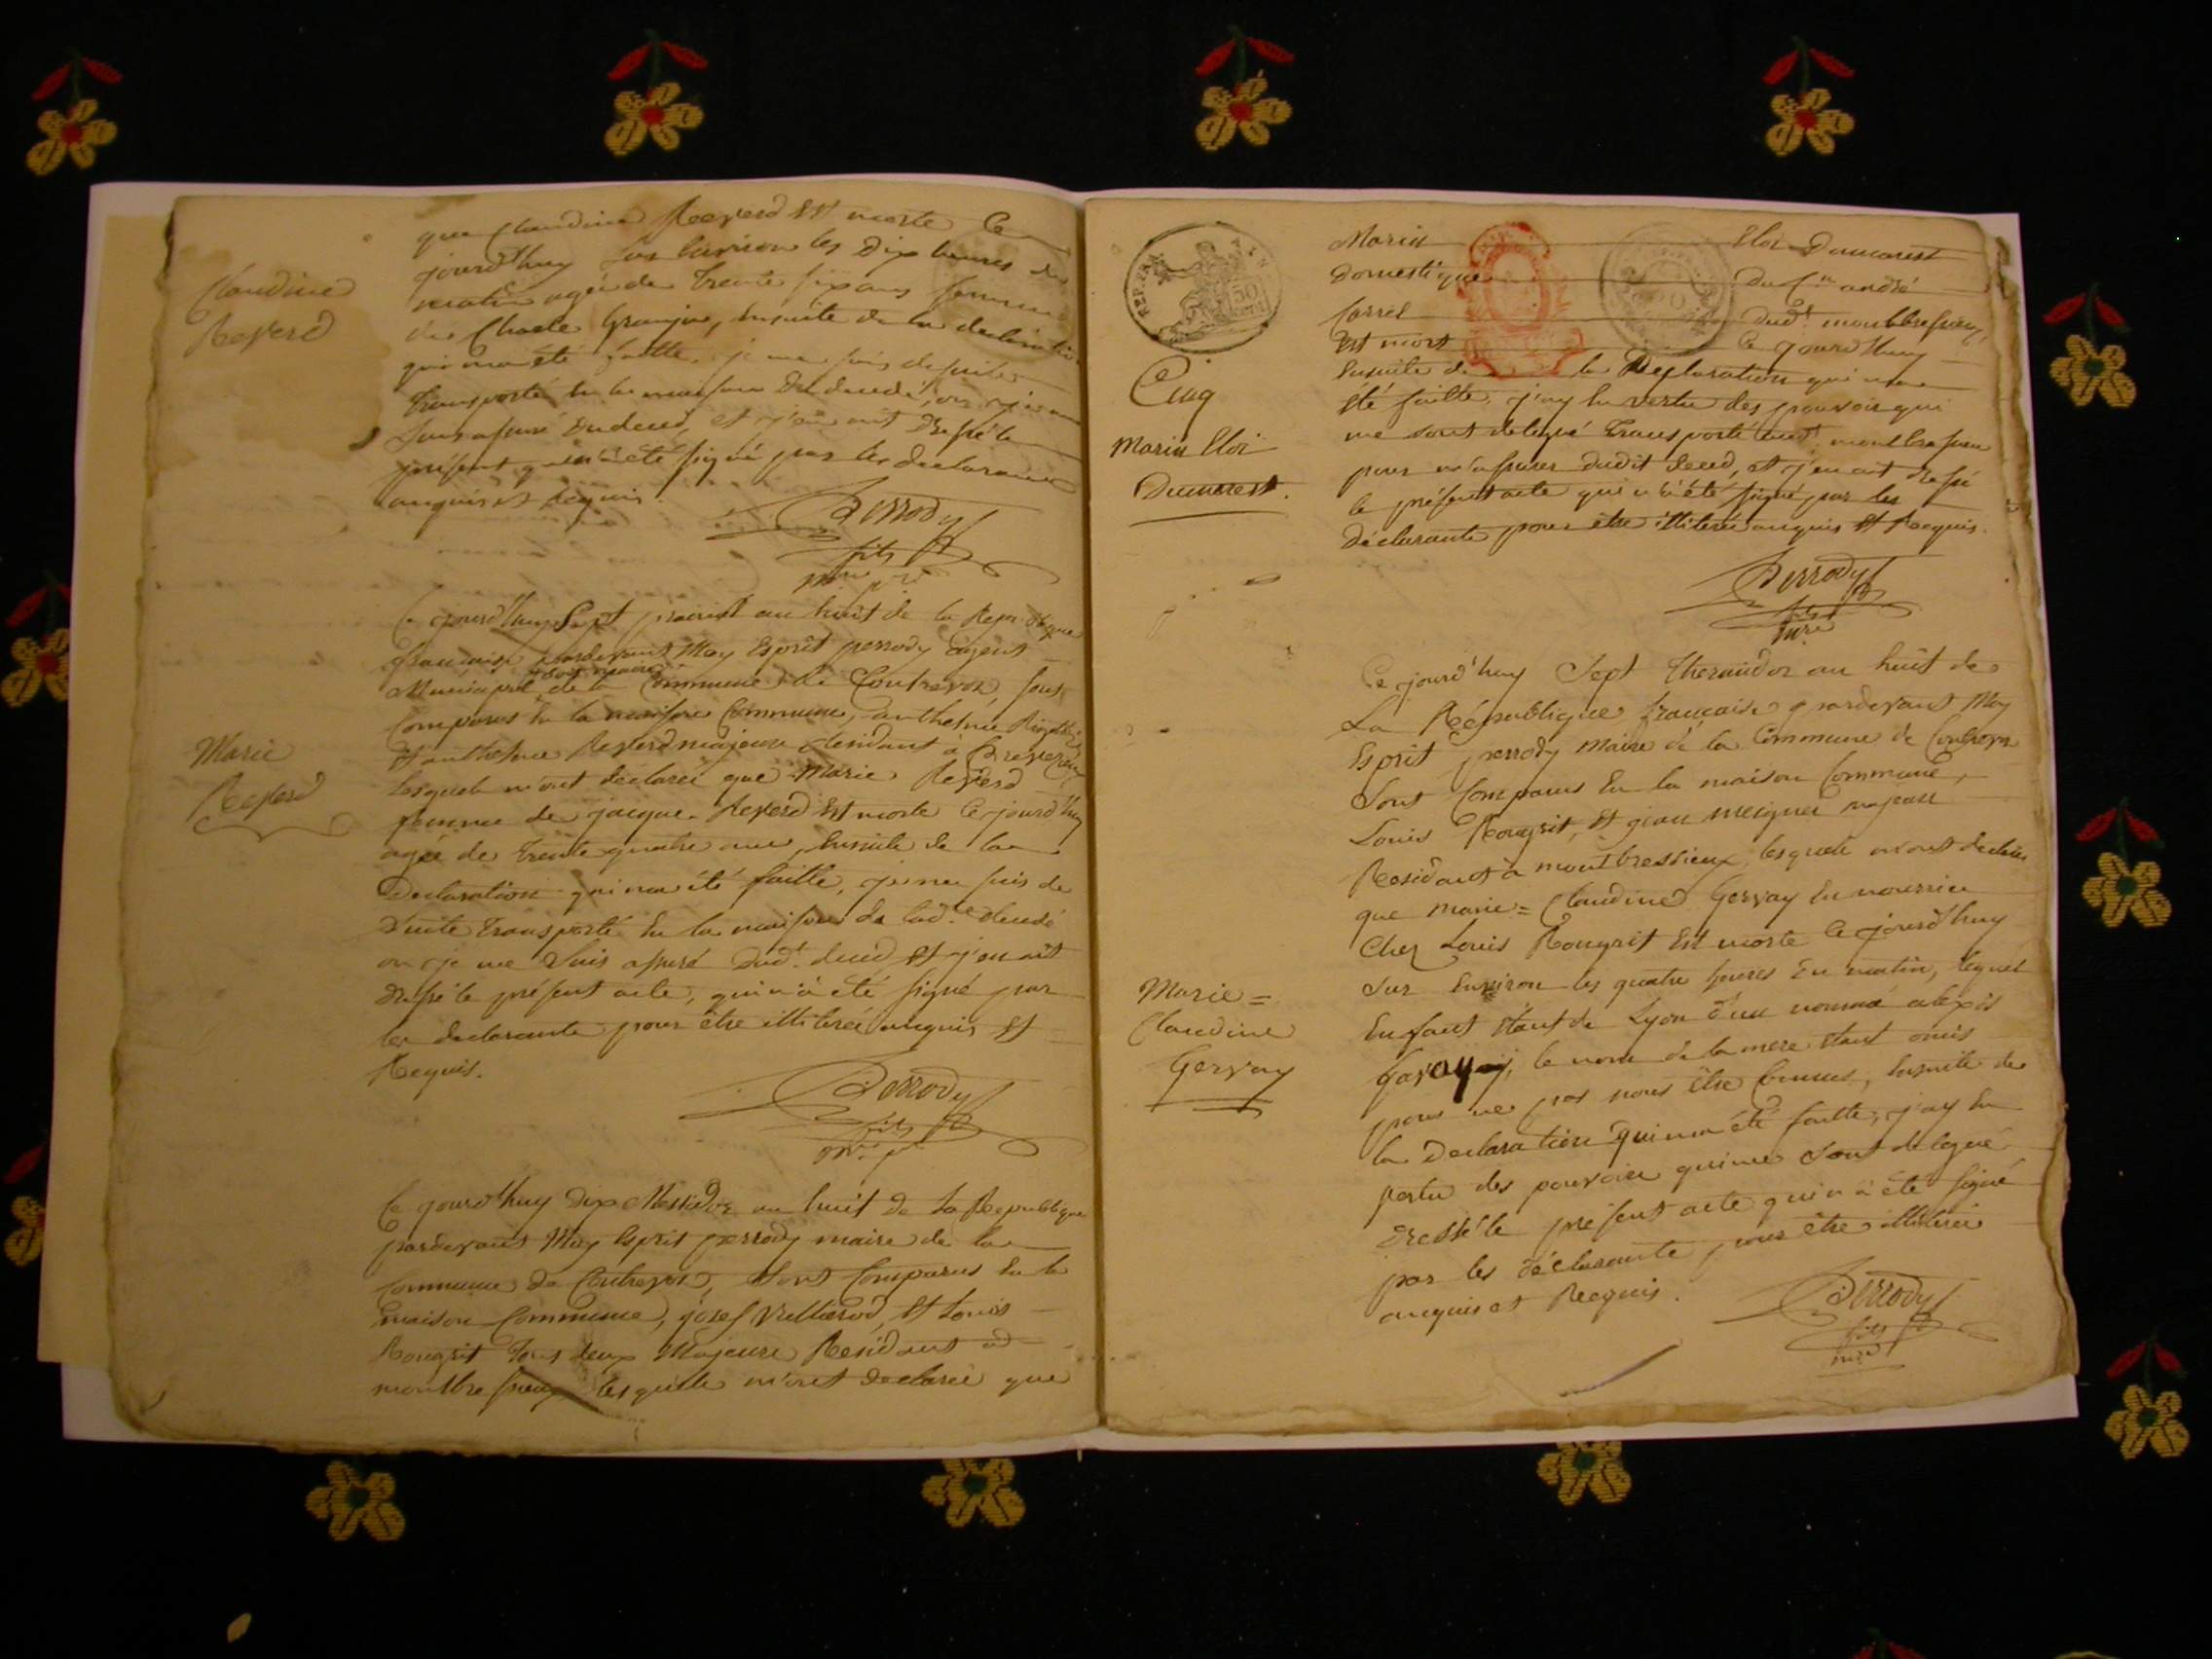 Claudine
Reverd
que Claudine Reverd Est morte Ce
jourd'huy sur lanviron les Dix heures du
matin agée de trente six ans femme
de Charle Granjon, Ensuite de la declaration
qui m'a été faitte, je me suis de suite
transporté En la maison du decedé, ou je me
suis assuré du deced, et j'en ait Dressé le
présent qui n'a été signé par les declarants
enquis et Requis
Perrody
fils
Marie
Reverd
Ce jourd'huy Sept prairial an huit de la Republique
française pardevant Moy Esprit perrody agent
Municipal de la Commune de Contrevoz sont
Comparus En la maison Commune, anthelme
Et anthelme Reverd majeure Residant à
lesquels m'ont déclaréé que Marie Reverd
femme de jacque Reverd Est morte Ce jourd'huy
agée de trente quatre ans, Ensuite de la
Declaration qui ma été faitte, je me suis de
Suitte transporté En la maison de lad.e decedé
ou je me Suis assuré dud.t deced Et j'en ait
dressé le présent acte, qui n'a été signé par
les declarants pour être illiteréé enquis Et
Requis.
Perrody
fils
Ce jourd'huy Dix Messidor an huit de La Republique
pardevant Moy Esprit perrody maire de la
Commune de Contrevoz, Sont Comparus En la
maison Commune, josef Vullierod, Et Louis
Rougrit tous deux Majeure Residant à
montbressieux lesquels m'ont declaréé que
REP. FRA.
50
CENT.
Cinq
Marin Eloi
Dumarest.
Marin Eloi Dumarest
Domestique Du C.en andré
Carrel dud.t montbressieux,
Est mort Ce jourd'huy
Ensuite de la Déclaration qui ma
été faitte, j'ay En vertu des pouvoir qui
me sont delegué transporté aud.t montbressieux
pour m'assurer dudit deced, et j'en ait dressé
le présent acte qui n'a été signé par les
déclarants pour être illiteréé enquis Et Requis.
Perrody
fils
Ce jourd'huy Sept thermidor an huit de
La République française pardevant Moy
Esprit perrody Maire de la Commune de Contrevoz
Sont Comparus En la maison Commune,
Louis Rougrit, Et jean meignier majeure
Residant à montbressieux, lesquels m'ont declaréé
que Marie = Claudine Gervay En nourrice
Chez Louis Rougrit Est morte Ce jourd'huy
Sur Environ les quatre heures Du matin, lequel
Enfant Etant de Lyon d'un nommé alexis
Gavoy, le nom de la mere Etant omis
pour ne pas nous être Connus, Ensuite de
la Declaration qui m'a été faitte, j'ay En
vertu des pouvoirs qui me Sont delegué
Dressé le présent acte qui n'a été signé
par les déclarants pour être illiteréé
enquis et Requis.
Marie =
Claudine
Gervay
Perrody
fils